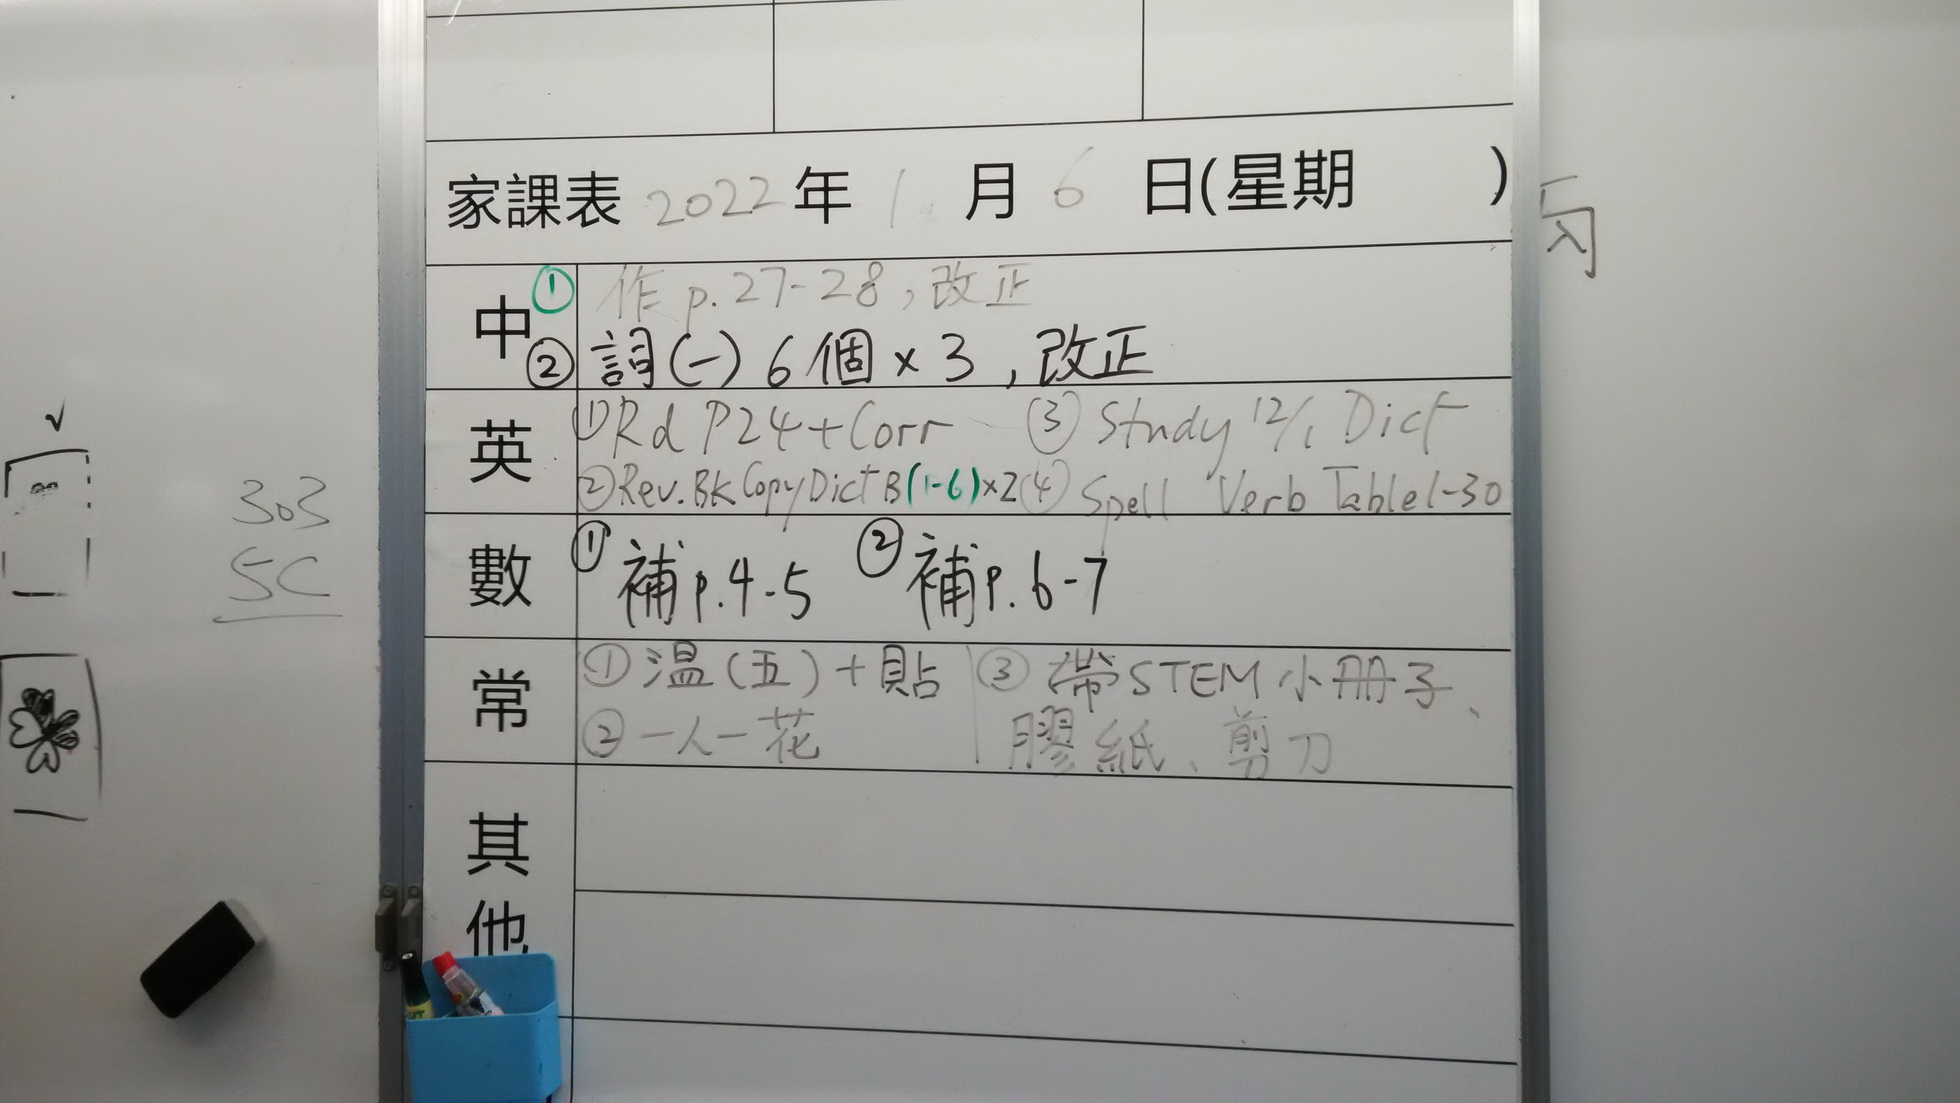 家課表 2022 年 1 月 6 日(星期 )
中 ① 作 p.27-28,改正
② 詞(一) 6個×3,改正
英 ① Rd P24+Corr ③ Study 12/1 Dict
② Rev.BK Copy Dict B(1-6)×2 ④ Spell Verb Table 1-30
數 ① 補p.4-5 ② 補p.6-7
常 ① 温(五)+貼 ③ 帶STEM小冊子、
② 一人一花 膠紙、剪刀
其
他
303
5C